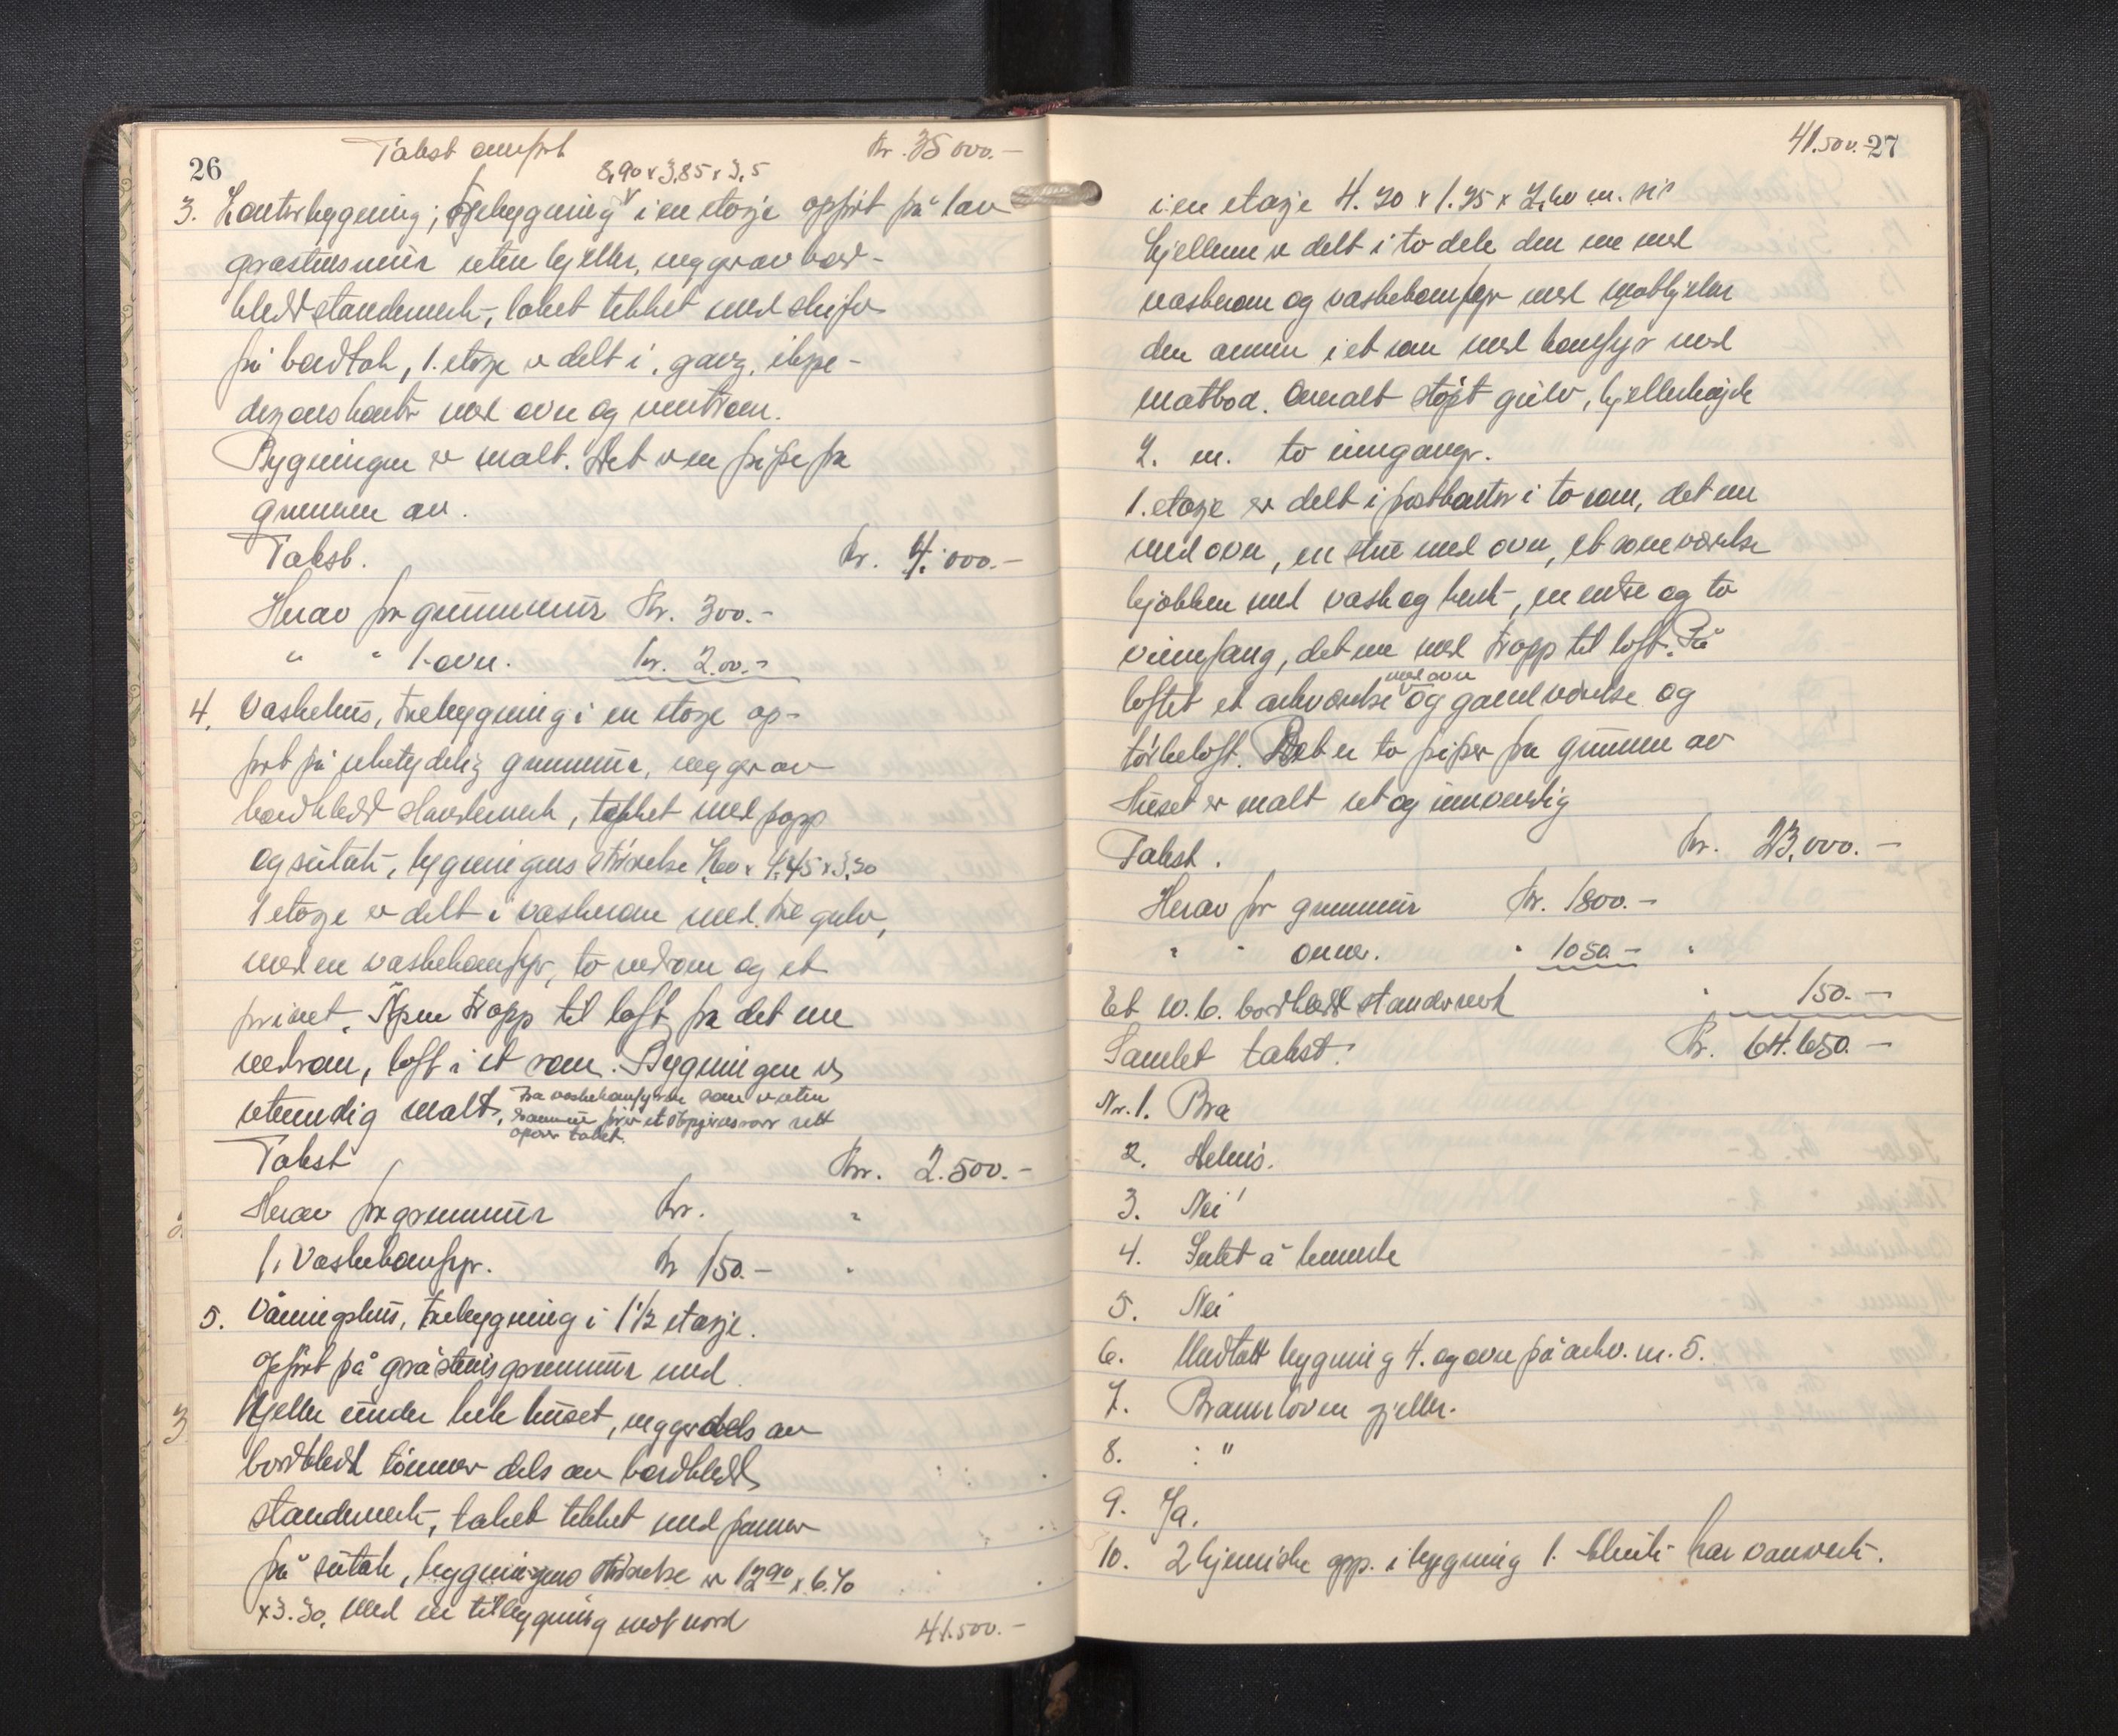 26
Takst overført Kr. 35000.-
8,90 x 3,85 x 3,5
3. Kontorbygning; Trebygning i en etasje opført på lav
gråstensmur uten kjeller, vegger av bord-
kledt standerverk, taket tekket med skifer
på bordtak, 1. etasje er delt i, gang, ekspe-
disjonskontor med ovn og venterom.
Bygningen er malt. Det er en pipe fra
grunnen av.
Takst. kr. 4.000.-
Herav for grunnmur Kr. 300.-
" " 1. ovn. kr. 200.-
4. Vaskehus, trebygning i en etasje op-
ført på ubetydelig grunnmur, vegger av
bordkledt standerverk, tekket med papp
og sutak, bygningens størrelse 7,60 x 4,45 x 3,30
1 etasje er delt i vaskerom med tre gulv,
med en vaskekomfyr, to vedrom og et
privet. Åpen trapp til loft fra det ene
vedrom, loft i et rom. Bygningen er
utvendig malt, Fra vaskekomfyren som er uten
grunnmur fører et røkrør rett
op over taket.
Takst Kr. 2.500.-
Herav for grunnmur kr. "
1. Vaskekomfyr. Kr 150.- "
5. Våningshus, trebygning i 1 1/2 etasje.
Opført på gråstensgrunnmur med
kjeller under hele huset, vegger dels av
bordkledt tømmer dels av bordkledt
standerverk, taket tekket med panner
på sutak, bygningens størrelse er 12,90 x 6.40
x 3.30. med en tilbygning mot nord
41.500.-
41.500.- 27
i en etasje 4.20 x 1.75 x 2,40 m.
Kjelleren er delt i to dele den ene med
vaskerom og vaskekomfyr med matkjeller
den annen i et rom med komfyr med
matbod. Overalt støpt gulv, kjellerhøyde
2. m. to innganger.
1. etasje er delt i postkontor i to rom, det ene
med ovn, en stue med ovn, et soveværelse
kjøkken med vask og benk, en entre og to
vinnfang, det ene med trapp til loft. På
med ovn
loftet et arkværelse og gavelværelse og
tørkeloft. Det er to piper fra grunnen av
Huset er malt ut og innvendig
Takst. kr. 23.000.-
Herav for grunnmur Kr. 1800.-
" " ovner. " 1050.- "
Et w.c. bordkledt standerverk " 150.-
Samlet takst. Kr. 64.650.-
Nr. 1. Bra
2. Helhus.
3. Nei!
4. Intet å bemerke
5. Nei
6. Undtatt bygning 4. og ovn på arkv. nr. 5.
7. Brannloven gjelder.
8. : "
9. Ja.
10. 2 kjemiske app. i bygning 1. har vannverk.